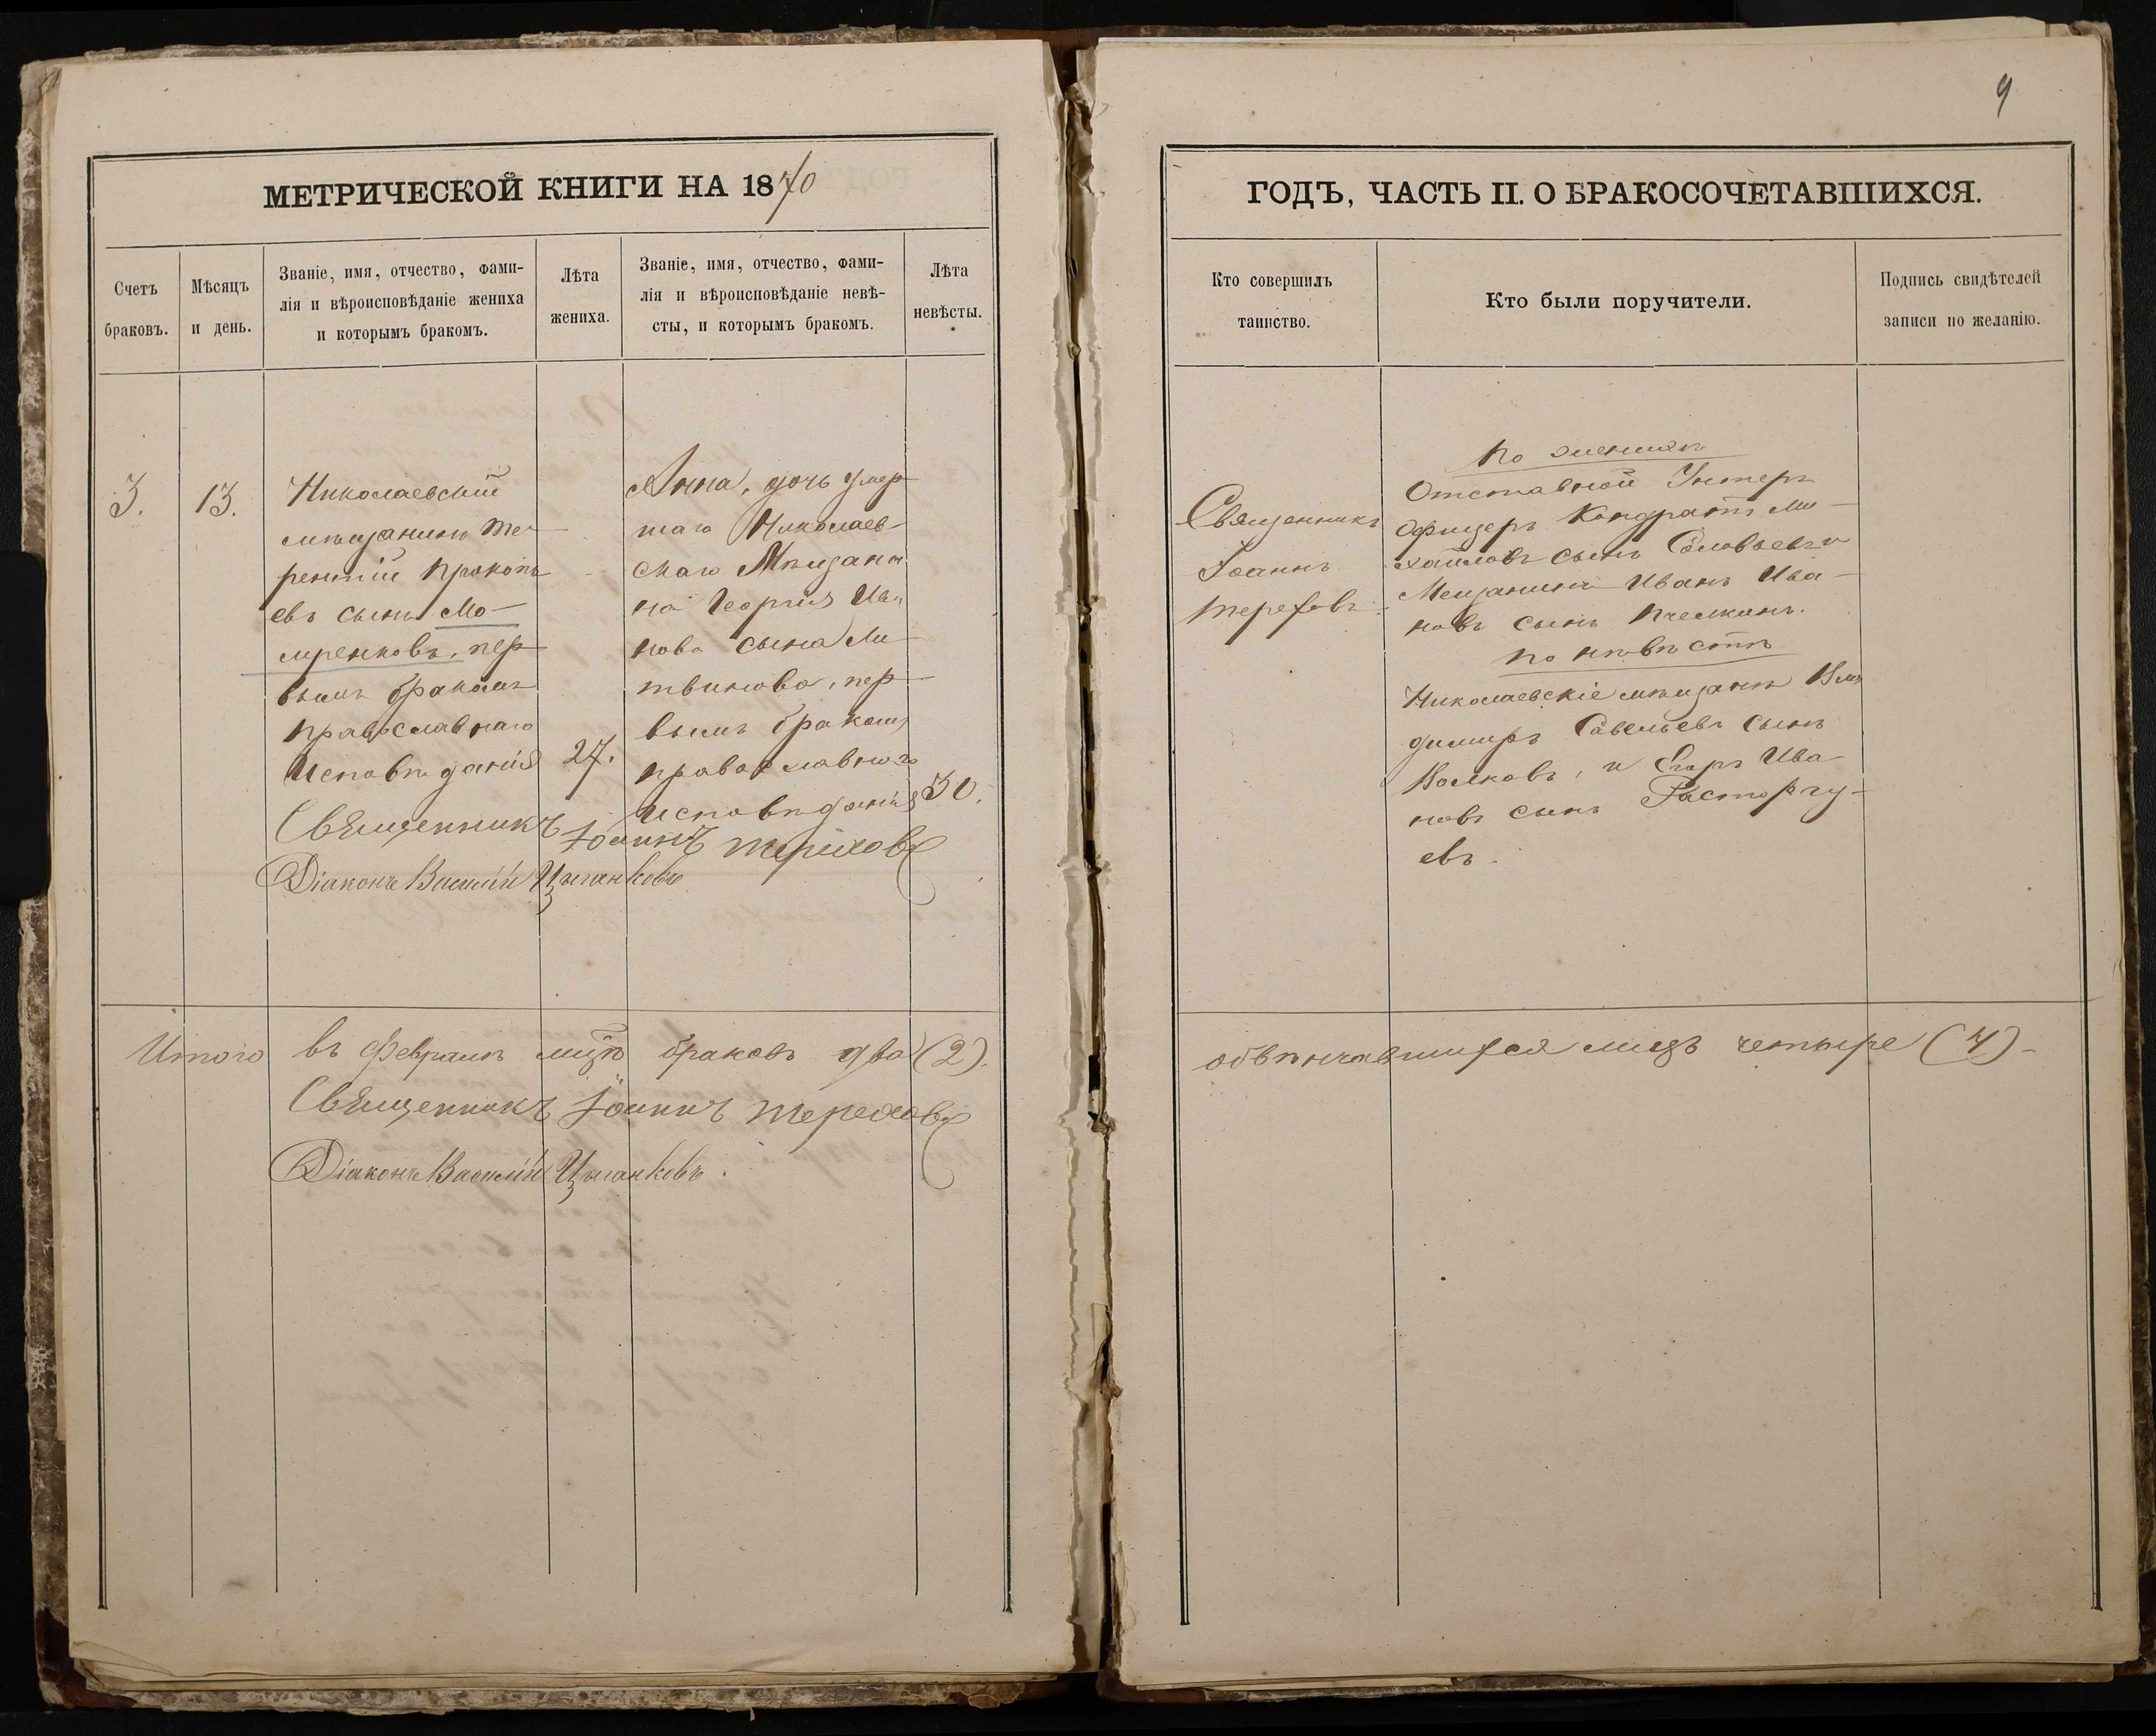 9
МЕТРИЧЕСКОЙ КНИГИ НА 1870
ГОДЪ, ЧАСТЬ II. О БРАКОСОЧЕТАВШИХСЯ.
Счетъ
браковъ.
Мѣсяцъ
и день.
Званіе, имя, отчество, фами-
лія и вѣроисповѣданіе жениха
и которымъ бракомъ.
Лѣта
жениха.
Званіе, имя, отчество, фами-
лія и вѣроисповѣданіе невѣ-
сты, и которымъ бракомъ.
Лѣта
невѣсты.
Кто совершилъ
таинство.
Кто были поручители.
Подпись свидѣтелей
записи по желанію.
3.
13.
Николаевскій
мѣщанинъ Те-
рентій Прокопь
евъ сынъ Мо-
мренковъ, пер-
вымъ бракомъ
православнаго
Исповѣданія
27.
Анна, дочь умер-
шаго Николаев
скаго Мѣщани
на Георгія Ива
нова сына Ли-
твинова, пер-
вымъ бракомъ
православнаго
исповѣданія
30.
Священникъ Іоаннъ Тереховъ
Діаконъ Василій Цыганковъ
Священникъ
Іоаннъ
Тереховъ.
По женихѣ
Отставной Унтеръ
Офицеръ Кондратъ Ми-
хайловъ сынъ Соловьевъ и
Мещанинъ Иванъ Ива-
новъ сынъ Пчелкинъ.
по невѣстѣ
Николаевскіе мѣщане Вла
димиръ Савельевъ сынъ
Волковъ, и Егоръ Ива
новъ сынъ Расторгу-
евъ.
Итого въ Февралѣ мцѣ браковъ два (2).
обвѣнчавшихся лицъ четыре (4)-
Священникъ Іоаннъ Тереховъ
Діаконъ Василій Цыганковъ.